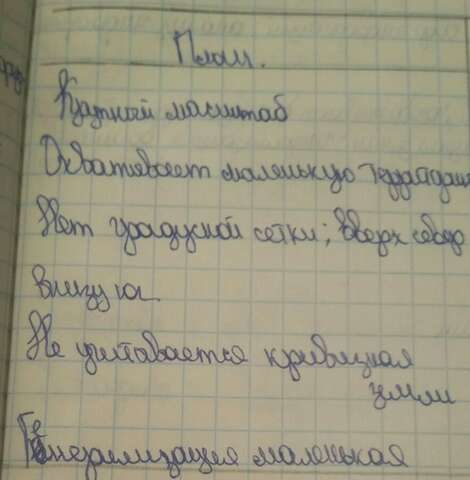 План.
Крупный масштаб
Охватывает маленькую территори
Нет градусной сетки; Вверх север
Внизу юг
Не учитывается кривизная
земли
Генерализация маленькая